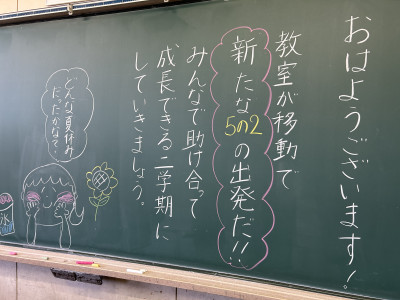 おはようございます！
教室が移動で
新たな5の2の出発だ!!
みんなで助け合って
成長できる二学期に
していきましょう。
どんな夏休み
だったかな？
氷